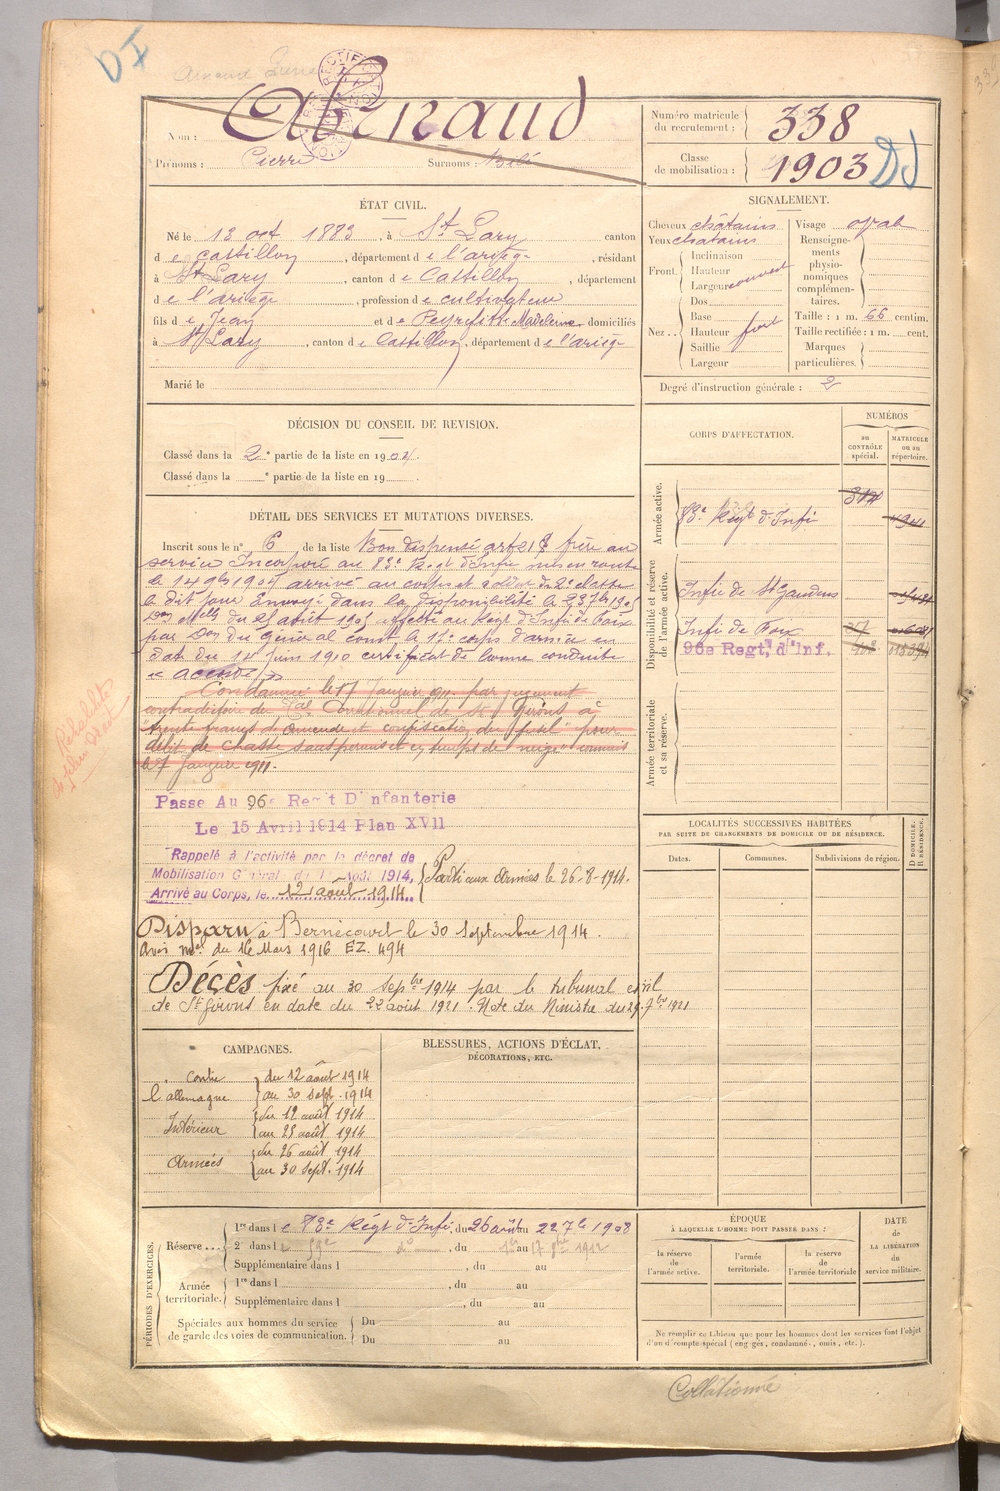 DI
Arnaud Pierre
Nom : Abrnaud
Prénoms : Pierre Surnoms : Bibi
Numéro matricule du recrutement : 338
Classe de mobilisation : 1903
ÉTAT CIVIL.
Né le 13 oct 1883, à St Lary canton
de castillon, département de l'arieg-, résidant
à St Lary, canton de Castillon, département
de l'ariège, profession de cultivateur
fils de Jean et de Peyrefitte Madeleine domiciliés
à St Lary, canton de Castillon, département de l'arieg-
Marié le
SIGNALEMENT.
Cheveux châtains
Yeux chatains
Front. Inclinaison
Hauteur
Largeur couvert
Nez.. Dos
Base
Hauteur fort
Saillie
Largeur
Visage oval
Renseignements physionomiques complémentaires.
Taille : 1 m. 66 centim.
Taille rectifiée : 1 m. cent.
Marques particulières.
Degré d'instruction générale : 2
DÉCISION DU CONSEIL DE REVISION.
Classé dans la 2e partie de la liste en 1904.
Classé dans la e partie de la liste en 19
DÉTAIL DES SERVICES ET MUTATIONS DIVERSES.
Inscrit sous le n° 6 de la liste Bon dispensé art 21 § frère au
service Incorporé au 83e Regt d'Infie mis en route
le 14 9bre 1904 arrivé au corps et soldat de 2e classe
le dit jour Envoyé dans la disponibilité le 23 7bre 1905
affecté au Regt d'Infie de Foix
par Don du Général Comt le 17e corps d'armée en
date du 14 Juin 1910 certificat de bonne conduite
« accordé »
Condamné le 17 Janvier 1911 par jugement
contradictoire du Tal Correctionnel de St Girons à
"trente francs d'amende et confiscation du fusil" pour
délit de chasse sans permis et en temps de neige" commis
le 7 Janvier 1911.
Passe Au 96e Regt D'Infanterie
Le 15 Avril 1914 Plan XVII
Rappelé à l'activité par le décret de
Mobilisation Générale du 1 Août 1914,
Arrivé au Corps, le 12 août 1914
Parti aux Armées le 26-8-1914.
Disparu à Bernécourt le 30 Septembre 1914.
Avis mel du 16 Mars 1916 EZ. 494
Décès fixé au 30 Sepbre 1914 par le tribunal civil
de St Girons en date du 22 août 1921. Note du Ministre du 29-7bre 1921
CORPS D'AFFECTATION.
NUMÉROS
au CONTRÔLE spécial.
MATRICULE ou au répertoire.
Armée active.
83e Regt d'Infie
Disponibilité et réserve de l'armée active.
Infie de St Gaudens
Infie de Foix
96e Regt, d'Inf.
Armée territoriale et sa réserve.
LOCALITÉS SUCCESSIVES HABITÉES
PAR SUITE DE CHANGEMENTS DE DOMICILE OU DE RÉSIDENCE.
Dates.
Communes.
Subdivisions de région.
D DOMICILE.
R RÉSIDENCE.
CAMPAGNES.
Contre l'allemagne
du 12 août 1914
au 30 Sept. 1914
Intérieur
du 12 août 1914
au 25 août 1914
Armées
du 26 août 1914
au 30 Sept. 1914
BLESSURES, ACTIONS D'ÉCLAT,
DÉCORATIONS, ETC.
PÉRIODES D'EXERCICES.
Réserve... 1re dans le 83e Régt d'Infie, du 26 août au 22 7bre 1908
2e dans le 59e do, du au 17 1912
Supplémentaire dans l , du au
Armée territoriale. 1re dans l , du au
Supplémentaire dans l , du au
Spéciales aux hommes du service
de garde des voies de communication. Du au
Du au
ÉPOQUE
À LAQUELLE L'HOMME DOIT PASSER DANS :
la réserve de l'armée active.
l'armée territoriale.
la réserve de l'armée territoriale
DATE
de
LA LIBÉRATION
du
service militaire.
Ne remplir ce tableau que pour les hommes dont les services font l'objet
d'un décompte spécial (engagés, condamnés, omis, etc.).
Collationné